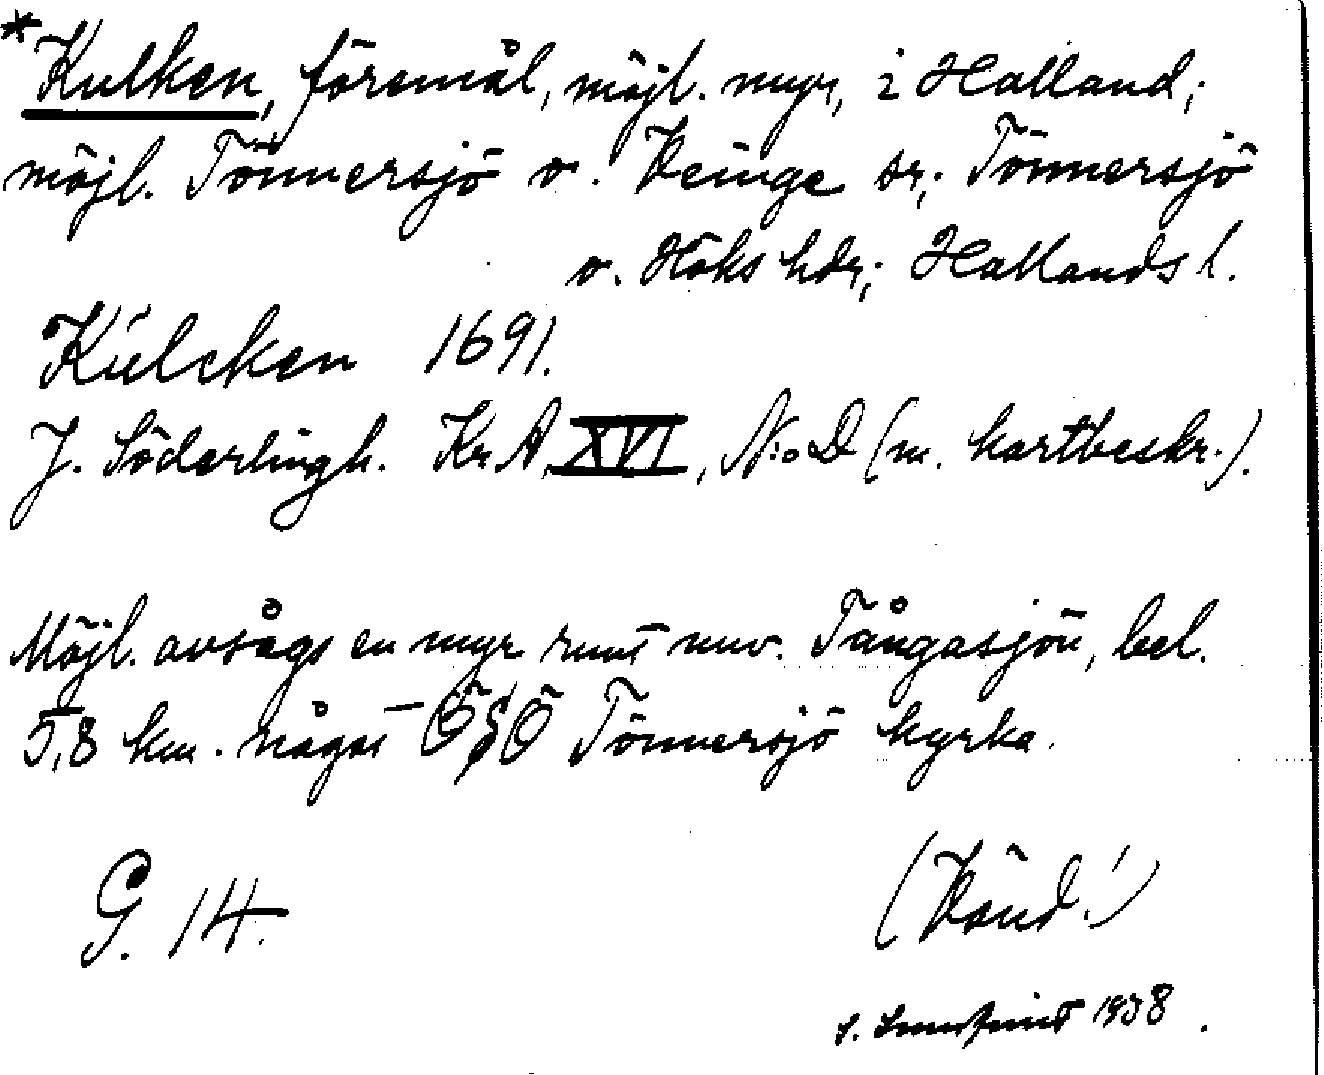 *Kulken, föremål, möjl. myr, i Halland;
möjl. Tönnersjö o. Veinge sr; Tönnersjö
o. Höks hdr; Hallands l.
Külcken 1691.
J. Söderlingh. Kr.A. XVI, N:o D (m. kartbeskr.).
Möjl. avsågs en myr runt nuv. Tångasjön, bel.
5,8 km. något ÖSÖ Tönnersjö kyrka.
G. 14.
(Vänd!)
1938.